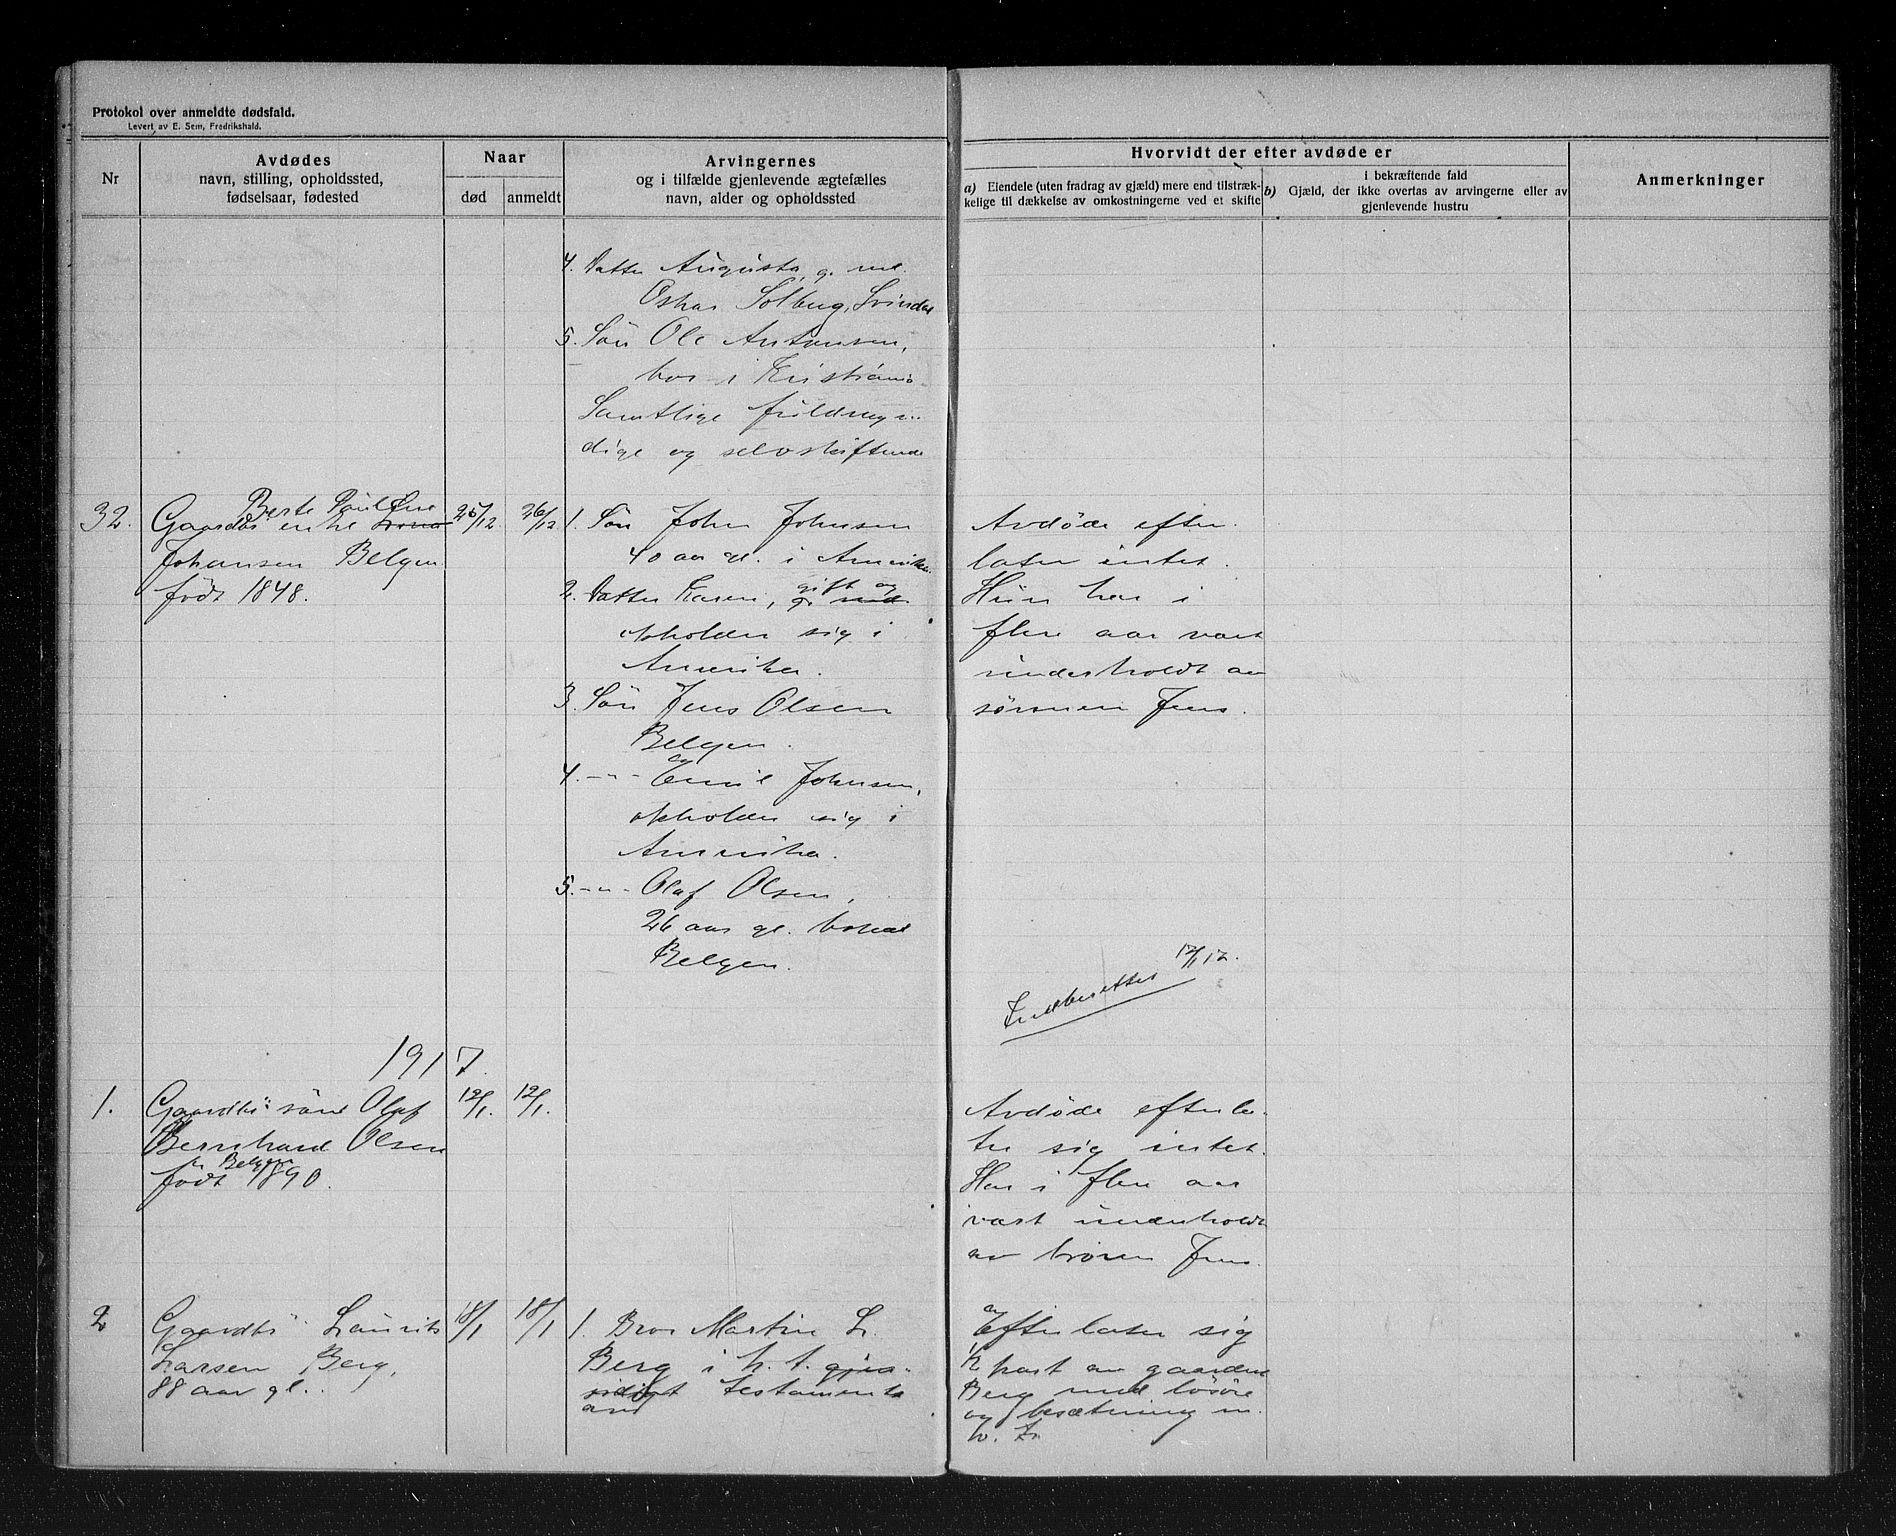 Protokol over anmeldte dødsfald.
Levert av E. Sem, Fredrikshald.
Nr
Avdødes
navn, stilling, opholdssted,
fødselsaar, fødested
Naar
død
anmeldt
Arvingernes
og i tilfælde gjenlevende ægtefælles
navn, alder og opholdssted
Hvorvidt der efter avdøde er
a) Eiendele (uten fradrag av gjæld) mere end tilstræk-
kelige til dækkelse av omkostningerne ved et skifte
i bekræftende fald
b) Gjæld, der ikke overtas av arvingerne eller av
gjenlevende hustru
Anmerkninger
4. Datter Augusta, g. med
Oskar Solberg, Svindal
5. Søn Ole Antonsen,
bor i Kristiania
Samtlige fuldmyn-
dige og selvskiftende
32.
Berte Pauline
Gaardbr enke
Johansen Belgen
født 1848.
25/12
26/12
1. Søn John Johnsen
40 aar gl. i Amerika.
2. Datter Karen, gift og
g. med
opholder sig i
Amerika.
3. Søn Jens Olsen
Belgen.
4. -"- Emil Johnsen,
opholder sig i
Amerika.
5. -"- Olaf Olsen,
26 aar gl. bopæl
Belgen.
Avdøde efter-
later intet.
Hun har i
flere aar vært
underholdt av
sønnen Jens.
Indberettet 12/1 17.
1917.
1.
Gaardbr søn Olaf
Bernhard Olsen
Belgen
født 1890.
12/1.
12/1.
Avdøde efterla-
ter sig intet.
Har i flere aar
vært underholdt
av broren Jens.
2
Gaardbr Laurits
Larsen Berg,
88 aar gl.
18/1
18/1
1. Bror Martin L.
Berg i h. t. gjen-
sidigt testamente
Efterlater sig
1/2 part av gaarden
Berg med løsøre
og besætning m.
v.